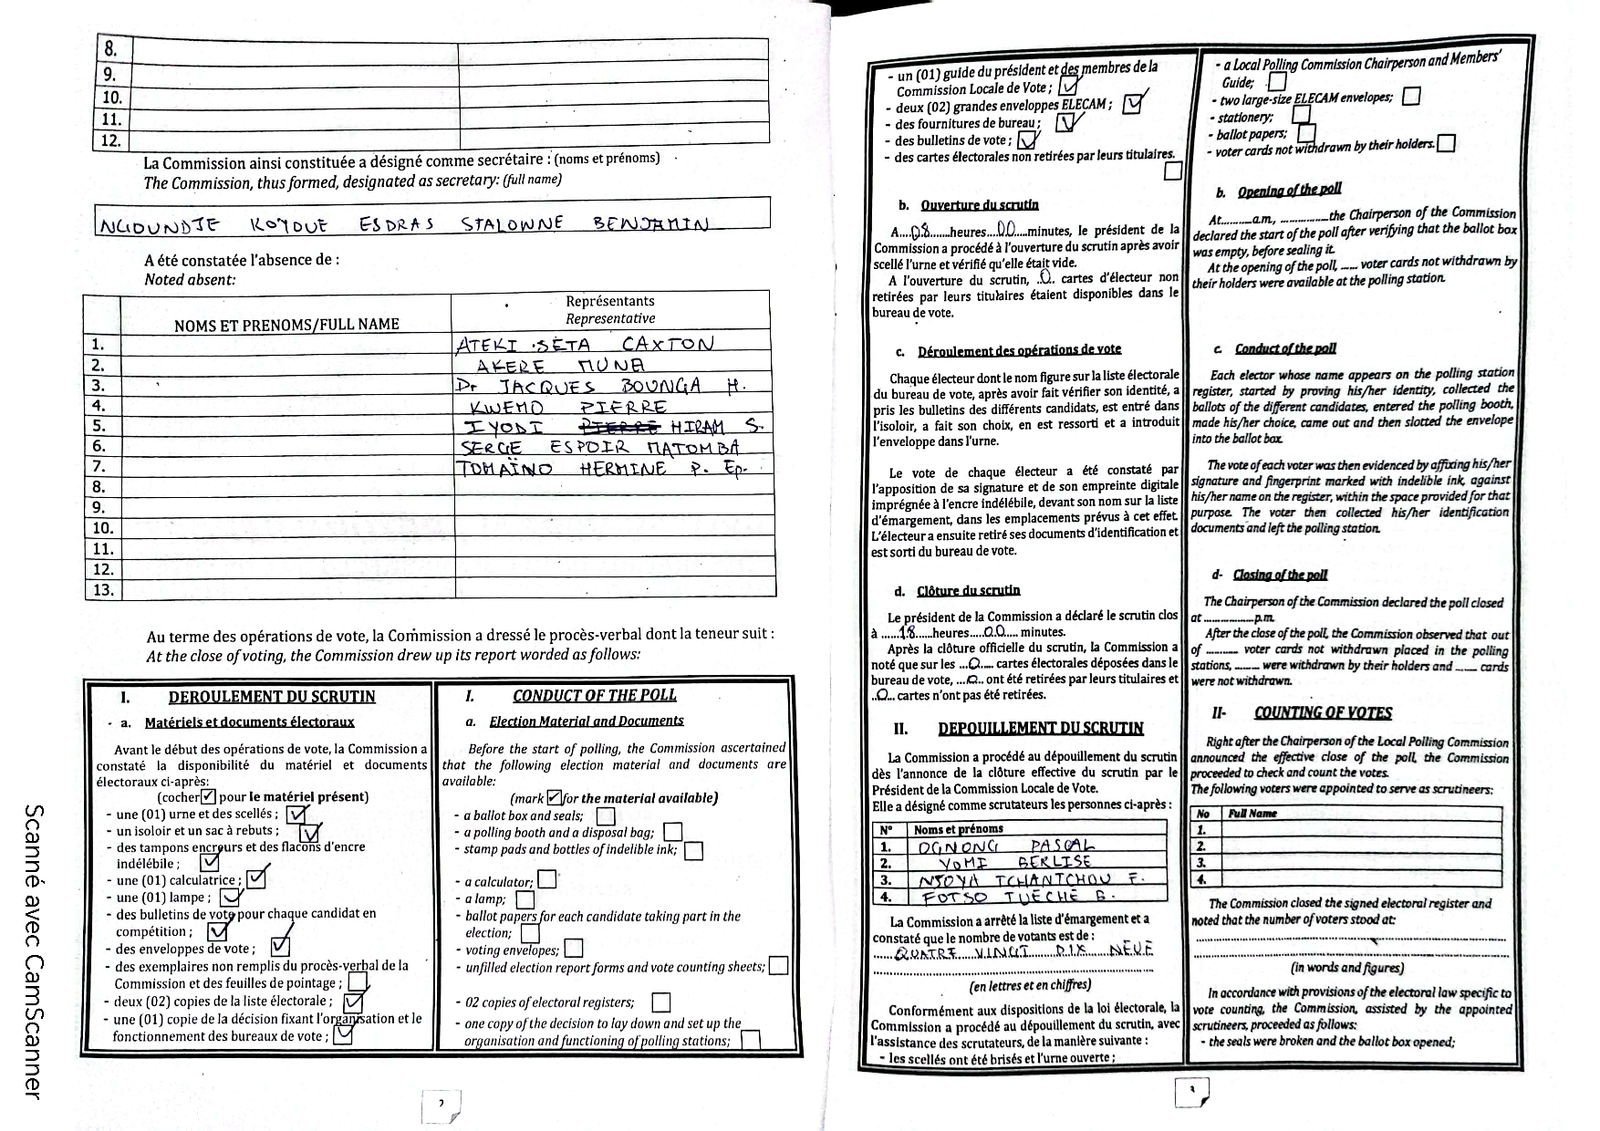 8.
9.
10.
11.
12.
La Commission ainsi constituée a désigné comme secrétaire : (noms et prénoms)
The Commission, thus formed, designated as secretary: (full name)
NGOUNDJE KOYOUE ESDRAS STALOWNE BENJAMIN
A été constatée l'absence de :
Noted absent:
NOMS ET PRENOMS/FULL NAME
Représentants
Representative
1. ATEKI SETA CAXTON
2. AKERE MUNA
3. Dr JACQUES BOUNGA H.
4. KWEMO PIERRE
5. IYODI PIERRE HIRAM S.
6. SERGE ESPOIR MATOMBA
7. TOMAÏNO HERMINE P. Ep.
8.
9.
10.
11.
12.
13.
Au terme des opérations de vote, la Commission a dressé le procès-verbal dont la teneur suit :
At the close of voting, the Commission drew up its report worded as follows:
I. DEROULEMENT DU SCRUTIN
a. Matériels et documents électoraux
Avant le début des opérations de vote, la Commission a
constaté la disponibilité du matériel et documents
électoraux ci-après:
(cocher pour le matériel présent)
- une (01) urne et des scellés ;
- un isoloir et un sac à rebuts ;
- des tampons encreurs et des flacons d'encre
indélébile ;
- une (01) calculatrice ;
- une (01) lampe ;
- des bulletins de vote pour chaque candidat en
compétition ;
- des enveloppes de vote ;
- des exemplaires non remplis du procès-verbal de la
Commission et des feuilles de pointage ;
- deux (02) copies de la liste électorale ;
- une (01) copie de la décision fixant l'organisation et le
fonctionnement des bureaux de vote ;
I. CONDUCT OF THE POLL
a. Election Material and Documents
Before the start of polling, the Commission ascertained
that the following election material and documents are
available:
(mark for the material available)
- a ballot box and seals;
- a polling booth and a disposal bag;
- stamp pads and bottles of indelible ink;
- a calculator;
- a lamp;
- ballot papers for each candidate taking part in the
election;
- voting envelopes;
- unfilled election report forms and vote counting sheets;
- 02 copies of electoral registers;
- one copy of the decision to lay down and set up the
organisation and functioning of polling stations;
2
Scanné avec CamScanner
- un (01) guide du président et des membres de la
Commission Locale de Vote ;
- deux (02) grandes enveloppes ELECAM ;
- des fournitures de bureau ;
- des bulletins de vote ;
- des cartes électorales non retirées par leurs titulaires.
b. Ouverture du scrutin
A....08......heures....00....minutes, le président de la
Commission a procédé à l'ouverture du scrutin après avoir
scellé l'urne et vérifié qu'elle était vide.
A l'ouverture du scrutin, ..0.. cartes d'électeur non
retirées par leurs titulaires étaient disponibles dans le
bureau de vote.
c. Déroulement des opérations de vote
Chaque électeur dont le nom figure sur la liste électorale
du bureau de vote, après avoir fait vérifier son identité, a
pris les bulletins des différents candidats, est entré dans
l'isoloir, a fait son choix, en est ressorti et a introduit
l'enveloppe dans l'urne.
Le vote de chaque électeur a été constaté par
l'apposition de sa signature et de son empreinte digitale
imprégnée à l'encre indélébile, devant son nom sur la liste
d'émargement, dans les emplacements prévus à cet effet.
L'électeur a ensuite retiré ses documents d'identification et
est sorti du bureau de vote.
d. Clôture du scrutin
Le président de la Commission a déclaré le scrutin clos
à ......18......heures.....00..... minutes.
Après la clôture officielle du scrutin, la Commission a
noté que sur les ...0.... cartes électorales déposées dans le
bureau de vote, ...0... ont été retirées par leurs titulaires et
..0... cartes n'ont pas été retirées.
II. DEPOUILLEMENT DU SCRUTIN
La Commission a procédé au dépouillement du scrutin
dès l'annonce de la clôture effective du scrutin par le
Président de la Commission Locale de Vote.
Elle a désigné comme scrutateurs les personnes ci-après :
N° Noms et prénoms
1. OGNONG PASCAL
2. YOMI BERLISE
3. NJOYA TCHANTCHOU F.
4. FOTSO TUECHE B.
La Commission a arrêté la liste d'émargement et a
constaté que le nombre de votants est de :
QUATRE VINGT DIX NEUF
(en lettres et en chiffres)
Conformément aux dispositions de la loi électorale, la
Commission a procédé au dépouillement du scrutin, avec
l'assistance des scrutateurs, de la manière suivante :
- les scellés ont été brisés et l'urne ouverte ;
- a Local Polling Commission Chairperson and Members'
Guide;
- two large-size ELECAM envelopes;
- stationery;
- ballot papers;
- voter cards not withdrawn by their holders.
b. Opening of the poll
At..........a.m, ................the Chairperson of the Commission
declared the start of the poll after verifying that the ballot box
was empty, before sealing it.
At the opening of the poll, ...... voter cards not withdrawn by
their holders were available at the polling station.
c. Conduct of the poll
Each elector whose name appears on the polling station
register, started by proving his/her identity, collected the
ballots of the different candidates, entered the polling booth,
made his/her choice, came out and then slotted the envelope
into the ballot box.
The vote of each voter was then evidenced by affixing his/her
signature and fingerprint marked with indelible ink, against
his/her name on the register, within the space provided for that
purpose. The voter then collected his/her identification
documents and left the polling station.
d- Closing of the poll
The Chairperson of the Commission declared the poll closed
at ..................p.m.
After the close of the poll, the Commission observed that out
of ........... voter cards not withdrawn placed in the polling
stations, ........ were withdrawn by their holders and ....... cards
were not withdrawn.
II- COUNTING OF VOTES
Right after the Chairperson of the Local Polling Commission
announced the effective close of the poll, the Commission
proceeded to check and count the votes.
The following voters were appointed to serve as scrutineers:
No Full Name
1.
2.
3.
4.
The Commission closed the signed electoral register and
noted that the number of voters stood at:
(in words and figures)
In accordance with provisions of the electoral law specific to
vote counting, the Commission, assisted by the appointed
scrutineers, proceeded as follows:
- the seals were broken and the ballot box opened;
3